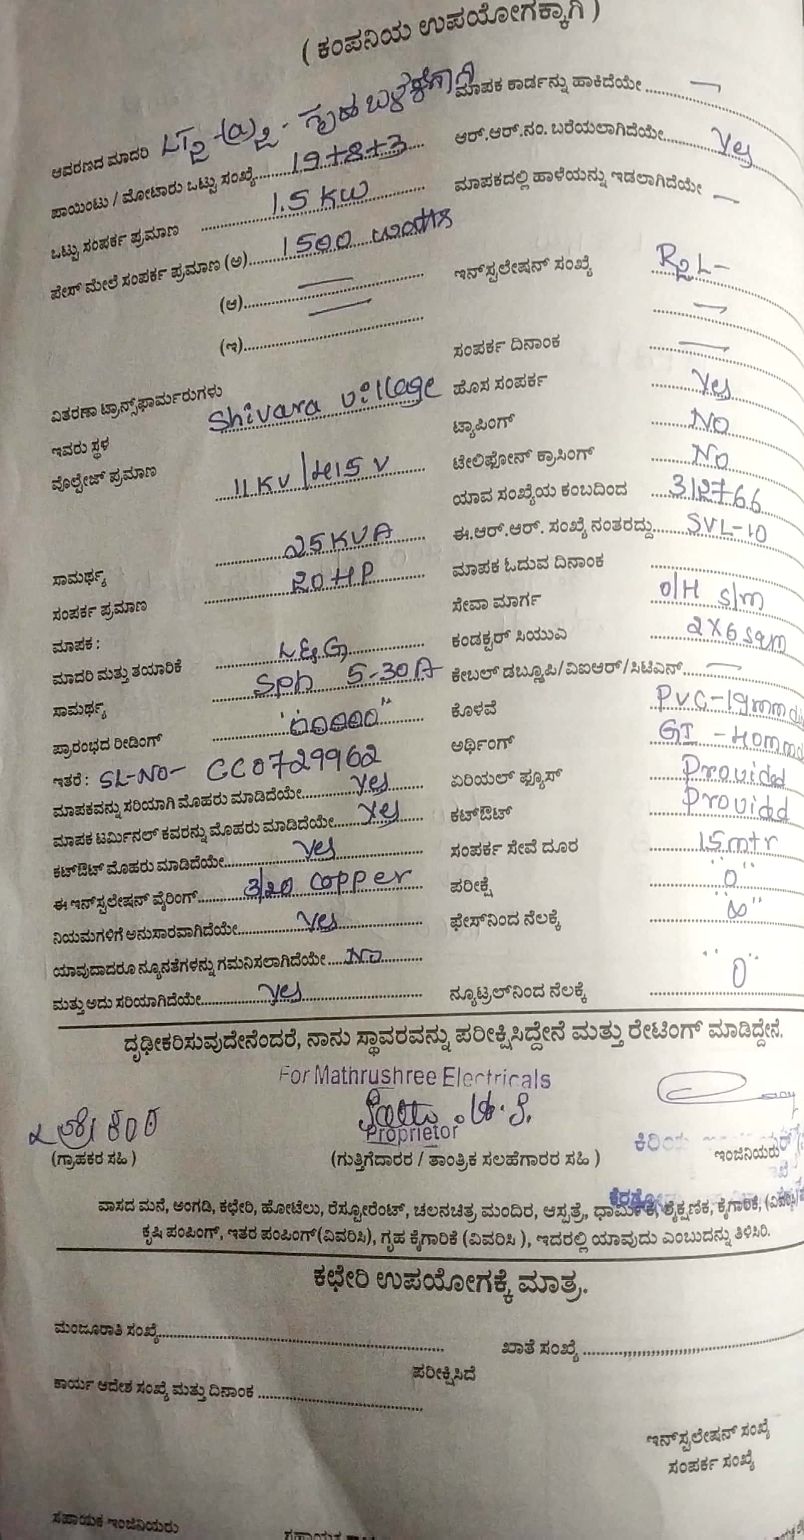 ( ಕಂಪನಿಯ ಉಪಯೋಗಕ್ಕಾಗಿ )
ಆವರಣದ ಮಾದರಿ LT2 (a)2 - ಗೃಹ ಬಳಕೆಗಾಗಿ
ಮಾಪಕ ಕಾರ್ಡನ್ನು ಹಾಕಿದೆಯೇ ........ —
ಪಾಯಿಂಟು / ಮೋಟಾರು ಒಟ್ಟು ಸಂಖ್ಯೆ........ 19+8+3
ಆರ್.ಆರ್.ನಂ. ಬರೆಯಲಾಗಿದೆಯೇ........ Yes
ಒಟ್ಟು ಸಂಪರ್ಕ ಪ್ರಮಾಣ ........ 1.5 KW
ಮಾಪಕದಲ್ಲಿ ಹಾಳೆಯನ್ನು ಇಡಲಾಗಿದೆಯೇ —
ಪೇಸ್ ಮೇಲೆ ಸಂಪರ್ಕ ಪ್ರಮಾಣ (ಅ)........ 1500 watts
ಇನ್‌ಸ್ಪಲೇಷನ್ ಸಂಖ್ಯೆ ........ R2L-
(ಆ)........ —
........ —
(ಇ)........ —
ಸಂಪರ್ಕ ದಿನಾಂಕ ........ —
ವಿತರಣಾ ಟ್ರಾನ್ಸ್‌ಫಾರ್ಮರುಗಳು
ಹೊಸ ಸಂಪರ್ಕ ........ Yes
ಇವರು ಸ್ಥಳ ........ Shivara village
ಟ್ಯಾಪಿಂಗ್ ........ NO
ವೊಲ್ಟೇಜ್ ಪ್ರಮಾಣ ........ 11 KV / 415 V
ಟೇಲಿಫೋನ್ ಕ್ರಾಸಿಂಗ್ ........ No
ಯಾವ ಸಂಖ್ಯೆಯ ಕಂಬದಿಂದ ........ 312766
ಸಾಮರ್ಥ್ಯ ........ 25 KVA
ಈ.ಆರ್.ಆರ್. ಸಂಖ್ಯೆ ನಂತರದ್ದು........ SVL-10
ಸಂಪರ್ಕ ಪ್ರಮಾಣ ........ 20 HP
ಮಾಪಕ ಓದುವ ದಿನಾಂಕ ........
ಮಾಪಕ :
ಸೇವಾ ಮಾರ್ಗ ........ O/H S/m
ಮಾದರಿ ಮತ್ತು ತಯಾರಿಕೆ ........ L&G
ಕಂಡಕ್ಟರ್ ಸಿಯುಎ ........ 2X6 Sqm
ಸಾಮರ್ಥ್ಯ ........ Sph 5-30A
ಕೇಬಲ್ ಡಬ್ಲೂಪಿ/ವಿಐಆರ್/ಸಿಟಿಎನ್........ —
ಪ್ರಾರಂಭದ ರೀಡಿಂಗ್ ........ "00000"
ಕೊಳವೆ ........ PVC-19mm
ಇತರೆ : SL-NO- GC0729962
ಅರ್ಥಿಂಗ್ ........ GI - 40mm
ಮಾಪಕವನ್ನು ಸರಿಯಾಗಿ ಮೊಹರು ಮಾಡಿದೆಯೇ........ Yes
ಏರಿಯಲ್ ಫ್ಯೂಸ್ ........ Providd
ಮಾಪಕ ಟರ್ಮಿನಲ್ ಕವರನ್ನು ಮೊಹರು ಮಾಡಿದೆಯೇ........ Yes
ಕಟ್‌ಔಟ್ ........ Providd
ಕಟ್‌ಔಟ್ ಮೊಹರು ಮಾಡಿದೆಯೇ........ Yes
ಸಂಪರ್ಕ ಸೇವೆ ದೂರ ........ 15 mtr
ಈ ಇನ್‌ಸ್ಪಲೇಷನ್ ವೈರಿಂಗ್........ 3/20 Copper
ಪರೀಕ್ಷೆ ........ "0"
ನಿಯಮಗಳಿಗೆ ಅನುಸಾರವಾಗಿದೆಯೇ........ Yes
ಫೇಸ್‌ನಿಂದ ನೆಲಕ್ಕೆ ........ "∞"
ಯಾವುದಾದರೂ ನ್ಯೂನತೆಗಳನ್ನು ಗಮನಿಸಲಾಗಿದೆಯೇ........ No
ಮತ್ತು ಅದು ಸರಿಯಾಗಿದೆಯೇ........ Yes
ನ್ಯೂಟ್ರಲ್‌ನಿಂದ ನೆಲಕ್ಕೆ ........ "0"
ದೃಢೀಕರಿಸುವುದೇನೆಂದರೆ, ನಾನು ಸ್ಥಾವರವನ್ನು ಪರೀಕ್ಷಿಸಿದ್ದೇನೆ ಮತ್ತು ರೇಟಿಂಗ್ ಮಾಡಿದ್ದೇನೆ.
For Mathrushree Electricals
Proprietor
(ಗ್ರಾಹಕರ ಸಹಿ )
(ಗುತ್ತಿಗೆದಾರರ / ತಾಂತ್ರಿಕ ಸಲಹೆಗಾರರ ಸಹಿ )
ಇಂಜಿನಿಯರು
ವಾಸದ ಮನೆ, ಅಂಗಡಿ, ಕಛೇರಿ, ಹೋಟೆಲು, ರೆಸ್ಟೋರೆಂಟ್, ಚಲನಚಿತ್ರ ಮಂದಿರ, ಆಸ್ಪತ್ರೆ, ಧಾರ್ಮಿಕ, ಶೈಕ್ಷಣಿಕ, ಕೈಗಾರಿಕೆ,
ಕೃಷಿ ಪಂಪಿಂಗ್, ಇತರ ಪಂಪಿಂಗ್(ವಿವರಿಸಿ), ಗೃಹ ಕೈಗಾರಿಕೆ (ವಿವರಿಸಿ ), ಇದರಲ್ಲಿ ಯಾವುದು ಎಂಬುದನ್ನು ತಿಳಿಸಿರಿ.
ಕಛೇರಿ ಉಪಯೋಗಕ್ಕೆ ಮಾತ್ರ.
ಮಂಜೂರಾತಿ ಸಂಖ್ಯೆ........
ಖಾತೆ ಸಂಖ್ಯೆ ........
ಪರೀಕ್ಷಿಸಿದೆ
ಕಾರ್ಯ ಆದೇಶ ಸಂಖ್ಯೆ ಮತ್ತು ದಿನಾಂಕ ........
ಇನ್‌ಸ್ಪಲೇಷನ್ ಸಂಖ್ಯೆ
ಸಂಪರ್ಕ ಸಂಖ್ಯೆ
ಸಹಾಯಕ ಇಂಜಿನಿಯರು